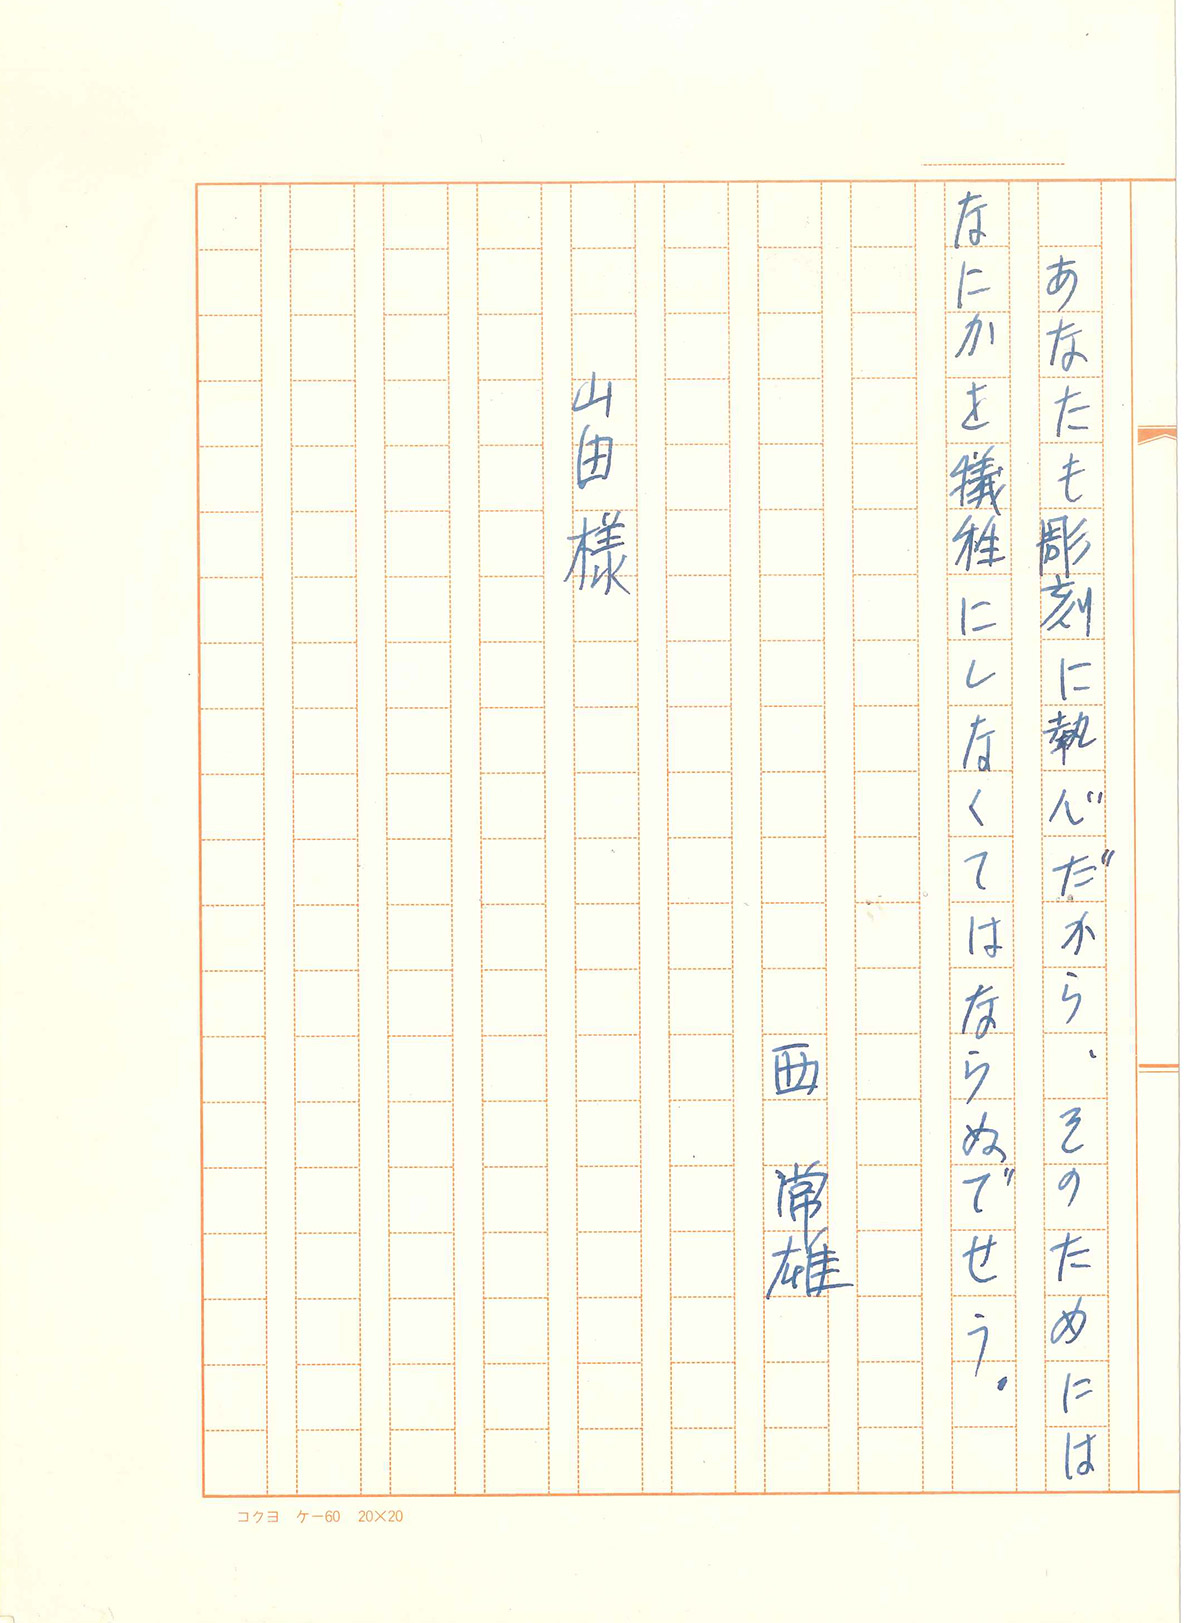 あなたも彫刻に執んだから、そのためには
なにかを犠牲にしなくてはならぬでせう。
西 常雄
山田様
コクヨ ケー60 20×20